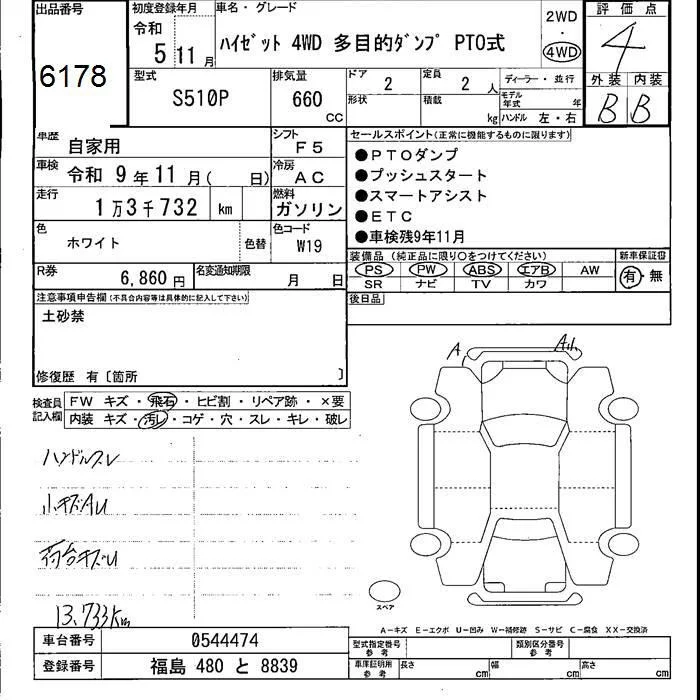 出品番号
6178
初度登録年月
令和
5 11月
車名・グレード
ハイゼット 4WD 多目的ダンプ PTO式
2WD
・
4WD
評価点
4
外装 内装
B B
型式
S510P
排気量
660
CC
ドア
2
定員
2 人
形状
積載
kg
ディーラー・並行
モデル年式 年
ハンドル 左・右
車歴
自家用
シフト
F5
車検
令和 9年 11月( 日)
冷房
AC
走行
1万3千732 km
燃料
ガソリン
色
ホワイト
色替
色コード
W19
R券
6,860 円
名変通知期限
月 日
セールスポイント(正常に機能するものに限ります)
●PTOダンプ
●プッシュスタート
●スマートアシスト
●ETC
●車検残9年11月
装備品(純正品に限り○をつけてください)
PS PW ABS エアB AW
SR ナビ TV カワ
新車保証書
有・無
後日品
注意事項申告欄(不具合内容等は具体的に記入して下さい)
土砂禁
修復歴 有〔箇所 〕
検査員記入欄
FW キズ・飛石・ヒビ割・リペア跡・×要
内装 キズ・汚レ・コゲ・穴・スレ・キレ・破レ
ハンドルスレ
小キズAU
荷台キズU
13,733km
A
スペア
A-キズ E-エクボ U-凹み W-補修跡 S-サビ C-腐食 XX-交換済
車台番号
0544474
登録番号
福島 480 と 8839
型式指定番号
参考
類別区分番号
参考
車庫証明用
参考
長さ cm
幅 cm
高さ cm